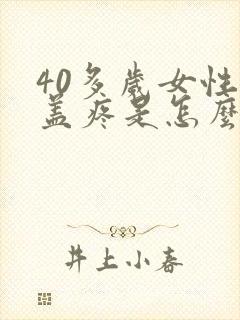 40多歲女性
盖疼是怎麼
井上小春